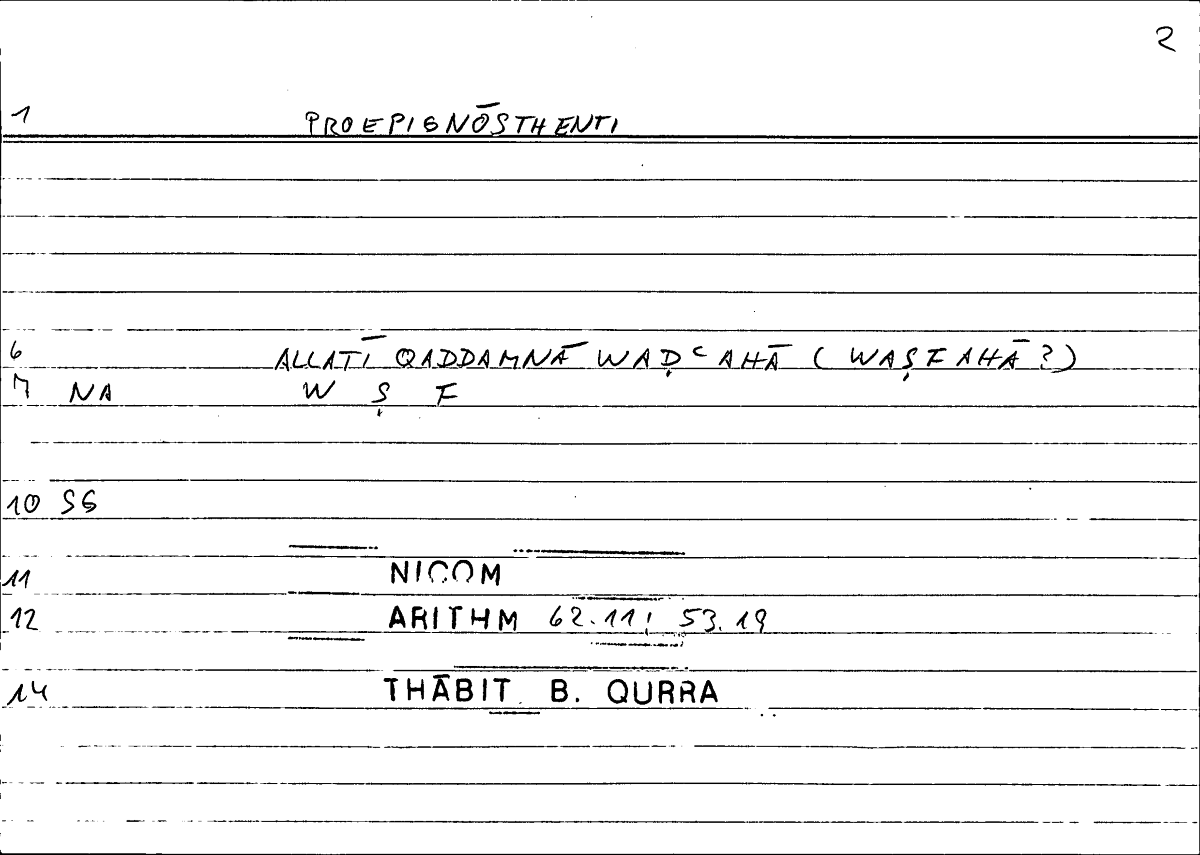 2
1 PROEPIGNŌSTHENTI
6 ALLATĪ QADDAMNĀ WAḌᶜAHĀ (WAṢFAHĀ?)
7 NA W Ṣ F
10 SG
11 NICOM
12 ARITHM 62.11; 53.19
14 THĀBIT B. QURRA